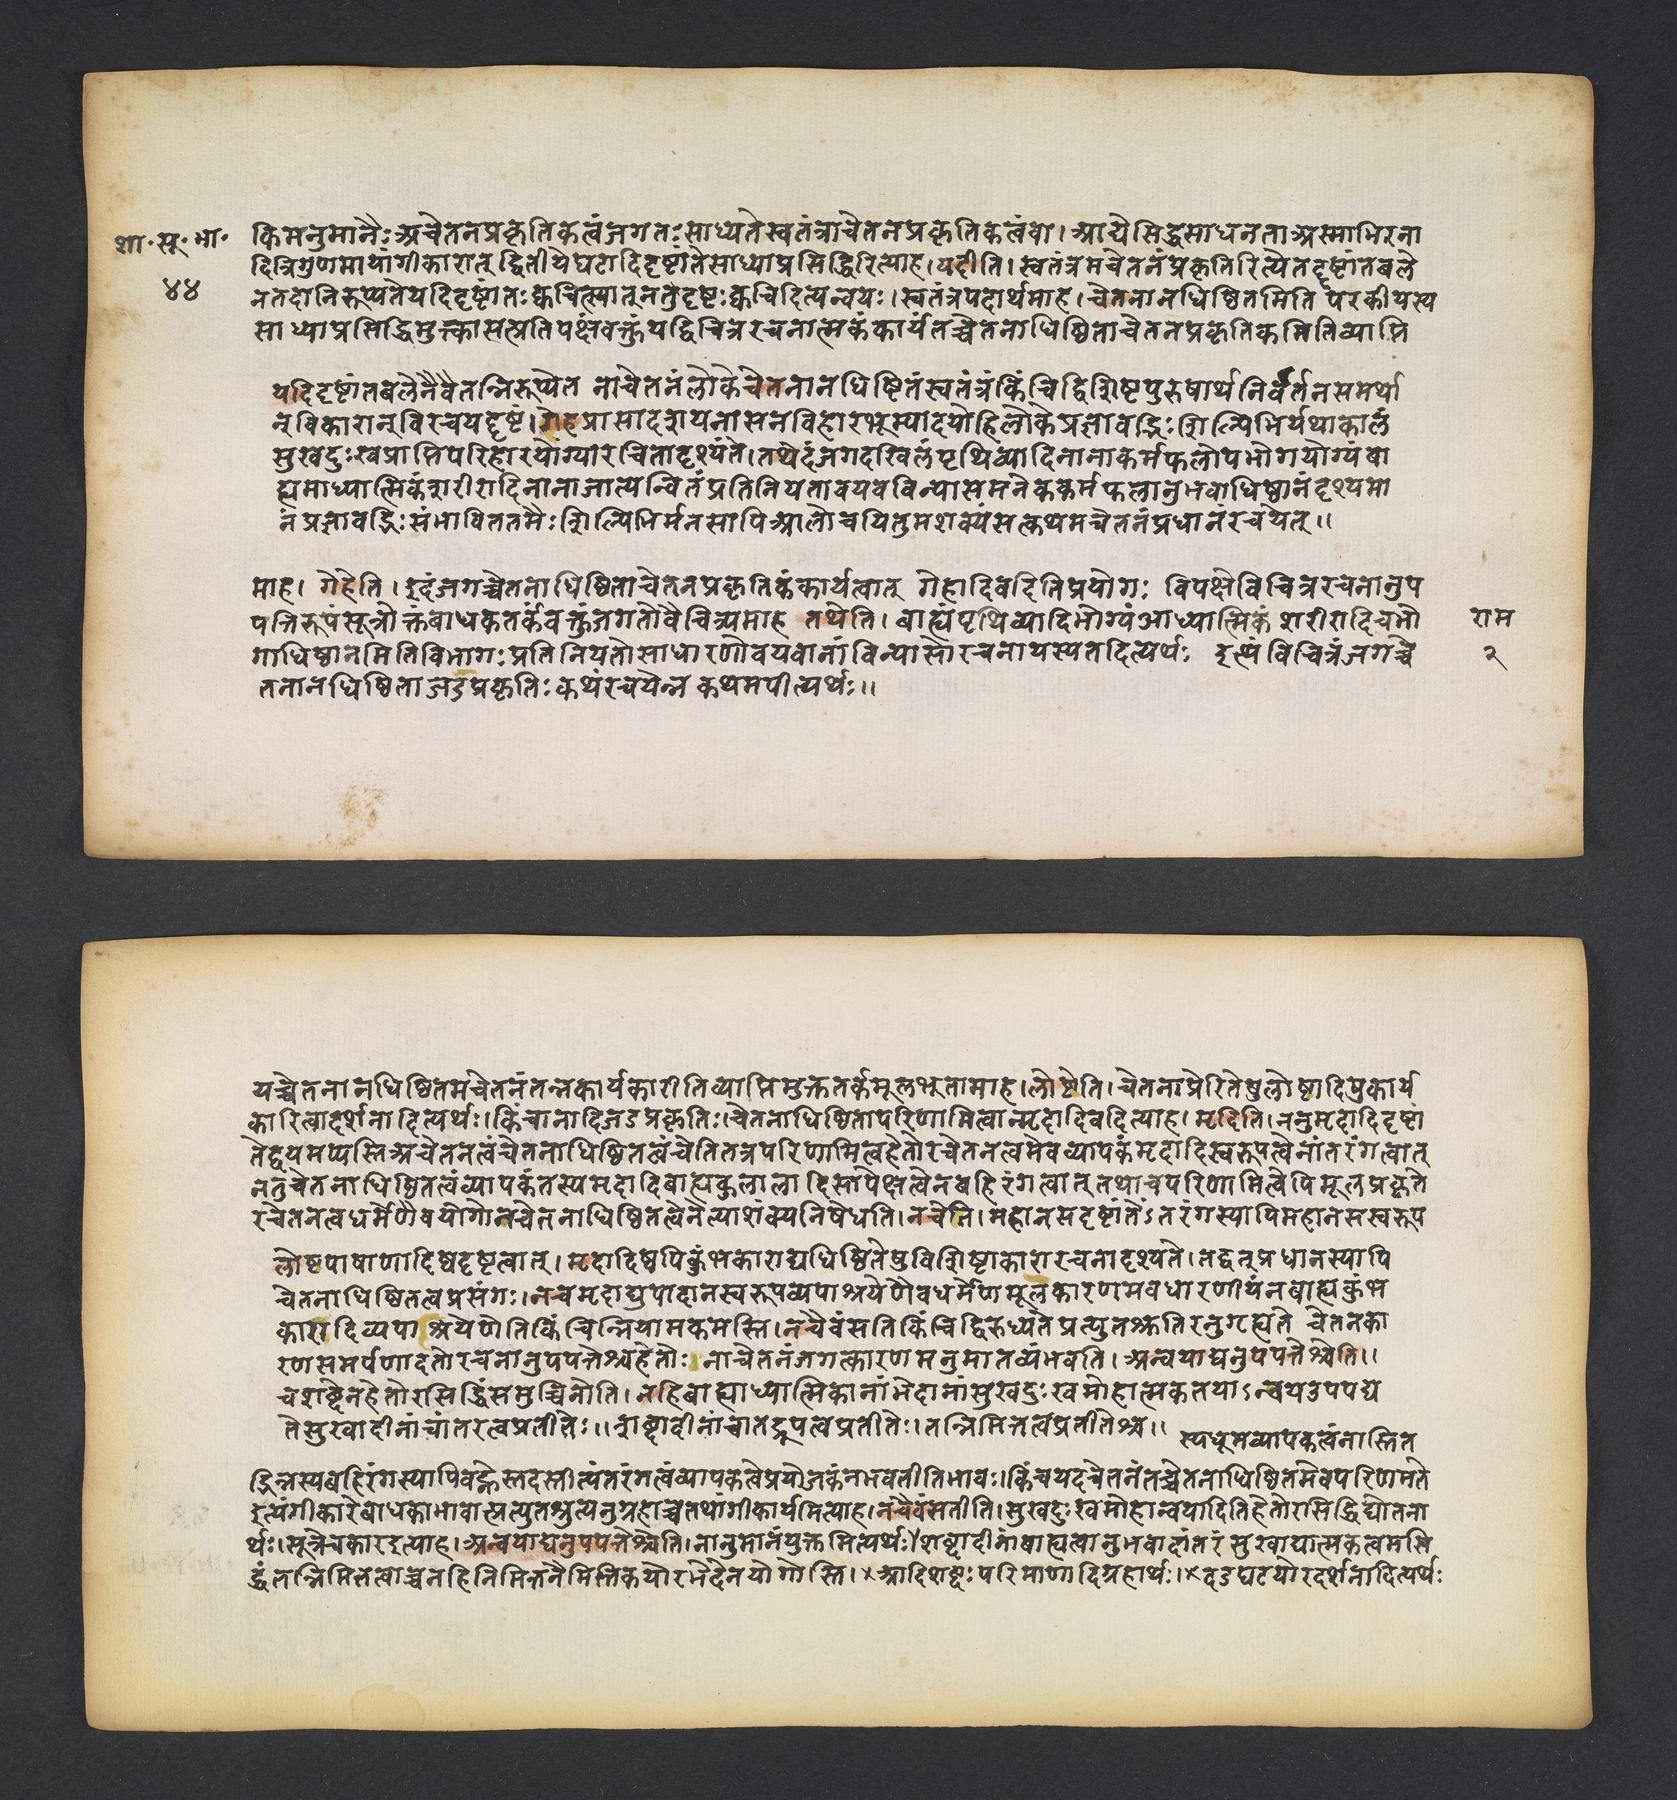 शा॰सू॰भा॰
४४
किमनुमानैः अचेतनप्रकृतिकत्वंजगतःसाध्यतेस्वतंत्राचेतनप्रकृतिकत्वंवा। आद्येसिद्धसाधनताअस्माभिरना
दित्रिगुणमायांगीकारात् द्वितीयेघटादिदृष्टांतेसाध्याप्रसिद्धिरित्याह।यदीति। स्वतंत्रमचेतनंप्रकृतिरित्येतदृष्टांतबले
नतदानिरूप्यतेयदिदृष्टांतःक्वचित्स्यात्नतुदृष्टःक्वचिदित्यन्वयः।स्वतंत्रपदार्थमाह।चेतनानधिष्ठितमिति परकीयस्य
साध्याप्रसिद्धिमुक्त्कासत्प्रतिपक्षंवक्तुंयद्विचित्ररचनात्मकंकार्यंतच्चेतनाधिष्ठिताचेतनप्रकृतिकमितिव्याप्ति
यदिदृष्टांतबलेनैवैतन्निरूप्येत नाचेतनंलोकेचेतनानधिष्टितंस्वतंत्रंकिंचिद्विशिष्टपुरुषार्थनिर्वर्तनसमर्था
न्विकारान्विरचयदृष्टं।गेहप्रासादशयनासनविहारभूम्यादयोहिलोकेप्रज्ञावद्भिःशिल्पिभिर्यथाकालं
सुखदुःखप्राप्तिपरिहारयोग्यारचितादृश्यंते।तथेदंजगदखिलंपृथिव्यादिनानाकर्मफलोपभोगयोग्यंबा
ह्यमाध्यात्मिकंशरीरादिनानाजात्यन्वितंप्रतिनियतावयवविन्यासमनेककर्मफलानुभवाधिष्ठानंदृश्यमा
नंप्रज्ञावद्भिःसंभाविततमैःशिल्पिभिर्मनसापिआलोचयितुमशक्यंसत्कथमचेतनंप्रधानंरचयेत्॥
माह। गेहेति।इदंजगच्चेतनाधिष्ठिताचेतनप्रकृतिकंकार्यत्वात् गेहादिवदितिप्रयोगः विपक्षेविचित्ररचनानुप
पत्तिरूपंसूत्रोक्तंबाधकतर्कंवक्तुंजगतोवैचित्र्यमाह तथेति। बाह्यंपृथिव्यादिभोग्यंआध्यात्मिकं शरीरादिचभो
गाधिष्ठानमितिविभागःप्रतिनियतोसाधारणोवयवानांविन्यासोरचनायस्यतदित्यर्थः इत्थंविचित्रंजगच्चे
तनानधिष्ठिताजडप्रकृतिःकथंरचयेन्न कथमपीत्यर्थः॥
राम
२
यच्चेतनानधिष्ठितमचेतनंतन्नकार्यकारीतिव्याप्तिमुक्ततर्कमूलभूतामाह।लोष्टेति।चेतनाप्रेरितेषुलोष्टादिषुकार्य
कारित्वादर्शनादित्यर्थः।किंचानादिजडप्रकृतिःचेतनाधिष्ठितापरिणामित्वान्मृदादिवदित्याह।मृदिति।ननुमृदादिदृष्टां
तेद्वयमप्यस्तिअचेतनत्वंचेतनाधिष्ठितत्वंचेतितत्रपरिणामित्वहेतोरचेतनत्वमेवव्यापकंमृदादिस्वरूपत्वेनांतरंगत्वात्
नतुचेतनाधिष्ठितत्वंव्यापकंतस्यमृदादिबाह्यकुलालादिसापेक्षत्वेनबहिरंगत्वात्तथाचपरिणामित्वेपिमूलप्रकृते
रचेतनत्वधर्मेणैवयोगोनचेतनाधिष्ठितत्वेनेत्याशंक्यनिषेधति।नचेति।महानसदृष्टांतेऽतरंगस्यापिमहानसस्वरूप
लोष्टपाषाणादिष्वदृष्टत्वात्।मृदादिष्वपिकुंभकाराद्यधिष्ठितेषुविशिष्टाकारारचनादृश्यते।तद्वत्प्रधानस्यापि
चेतनाधिष्ठितत्वप्रसंगः।नचमृदाद्युपादानस्वरूपव्यपाश्रयेणैवधर्मेणमूलकारणमवधारणीयंनबाह्यकुंभ
कारादिव्यपाश्रयेणेतिकिंचिन्नियामकमस्ति।नचैवंसतिकिंचिद्विरुध्यतेप्रत्युतश्रुतिरनुगृह्यते चेतनका
रणसमर्पणादतोरचनानुपपत्तेश्चहेतोः नाचेतनंजगत्कारणमनुमातव्यंभवति।अन्वयाद्यनुपपत्तेश्चेति॥
चशब्देनहेतोरसिद्धिंसमुच्चिनोति।नहिबाह्याध्यात्मिकानांभेदानांसुखदुःखमोहात्मकतयाऽन्वयउपपद्य
तेसुखादीनांचांतरत्वप्रतीतेः॥शब्दादीनांचातद्रूपत्वप्रतीतेः।तन्निमित्तत्वप्रतीतेश्च॥
स्यधूमव्यापकत्वंनास्तित
द्भिन्नस्यबहिरंगस्यापिवह्नेस्तदस्तीत्यंतरंगत्वंव्यापकत्वेप्रयोजकंनभवतीतिभावः।किंचयदचेतनंतच्चेतनाधिष्ठितमेवपरिणमते
इत्यंगीकारेबाधकाभावात्प्रत्युतश्रुत्यनुग्रहाच्चतथांगीकार्यमित्याह।नचैवंसतीति।सुखदुःखमोहान्वयादितिहेतोरसिद्धिद्योतना
र्थः।सूत्रेचकारइत्याह।अन्वयाद्यनुपपत्तेश्चेति।नानुमानंयुक्तमित्यर्थः।शब्दादीनांबाह्यत्वानुभवादांतरं सुखाद्यात्मकत्वमसि
द्धंतन्निमित्तत्वाच्चनहिनिमित्तनैमित्तिकयोरभेदेनयोगोस्ति।×आदिशब्दःपरिमाणादिग्रहार्थः।×दंडघटयोरदर्शनादित्यर्थः